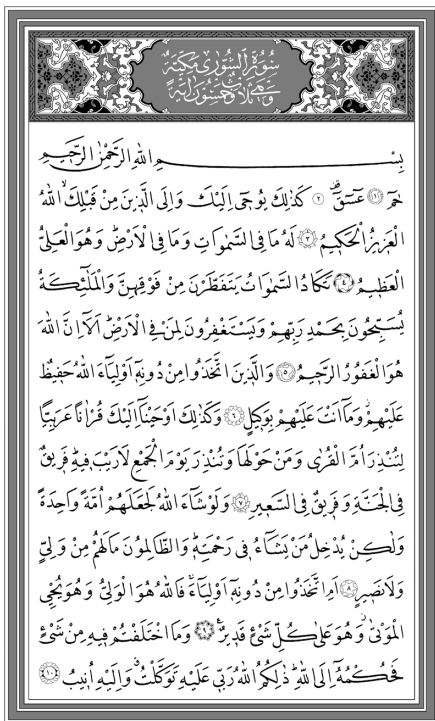 سُورَةُ الشُّورٰى مَكِّيَّةٌ
وَهِيَ ثَلَاثٌ وَخَمْسُونَ اٰيَةً
بِسْمِ اللّٰهِ الرَّحْمٰنِ الرَّحِيمِ
حٰمٓ ﴿١﴾ عٓسٓقٓ ﴿٢﴾ كَذٰلِكَ يُوحٓى اِلَيْكَ وَاِلَى الَّذِينَ مِنْ قَبْلِكَۙ اللّٰهُ
الْعَزِيزُ الْحَكِيمُ ﴿٣﴾ لَهُ مَا فِي السَّمٰوَاتِ وَمَا فِي الْاَرْضِۜ وَهُوَ الْعَلِيُّ
الْعَظِيمُ ﴿٤﴾ تَكَادُ السَّمٰوَاتُ يَتَفَطَّرْنَ مِنْ فَوْقِهِنَّ وَالْمَلٰٓئِكَةُ
يُسَبِّحُونَ بِحَمْدِ رَبِّهِمْ وَيَسْتَغْفِرُونَ لِمَنْ فِي الْاَرْضِۜ اَلَٓا اِنَّ اللّٰهَ
هُوَ الْغَفُورُ الرَّحِيمُ ﴿٥﴾ وَالَّذِينَ اتَّخَذُوا مِنْ دُونِهٓ اَوْلِيَٓاءَ اللّٰهُ حَفِيظٌ
عَلَيْهِمْۘ وَمَٓا اَنْتَ عَلَيْهِمْ بِوَكِيلٍ ﴿٦﴾ وَكَذٰلِكَ اَوْحَيْنَٓا اِلَيْكَ قُرْاٰنًا عَرَبِيًّا
لِتُنْذِرَ اُمَّ الْقُرٰى وَمَنْ حَوْلَهَا وَتُنْذِرَ يَوْمَ الْجَمْعِ لَا رَيْبَ فِيهِۜ فَرِيقٌ
فِي الْجَنَّةِ وَفَرِيقٌ فِي السَّعِيرِ ﴿٧﴾ وَلَوْ شَٓاءَ اللّٰهُ لَجَعَلَهُمْ اُمَّةً وَاحِدَةً
وَلٰكِنْ يُدْخِلُ مَنْ يَشَٓاءُ فِي رَحْمَتِهِۜ وَالظَّالِمُونَ مَا لَهُمْ مِنْ وَلِيٍّ
وَلَا نَصِيرٍ ﴿٨﴾ اَمِ اتَّخَذُوا مِنْ دُونِهٓ اَوْلِيَٓاءَۚ فَاللّٰهُ هُوَ الْوَلِيُّ وَهُوَ يُحْيِي
الْمَوْتٰىۘ وَهُوَ عَلٰى كُلِّ شَيْءٍ قَدِيرٌ۟ ﴿٩﴾ وَمَا اخْتَلَفْتُمْ فِيهِ مِنْ شَيْءٍ
فَحُكْمُهُٓ اِلَى اللّٰهِۜ ذٰلِكُمُ اللّٰهُ رَبِّي عَلَيْهِ تَوَكَّلْتُۗ وَاِلَيْهِ اُنِيبُ ﴿١٠﴾